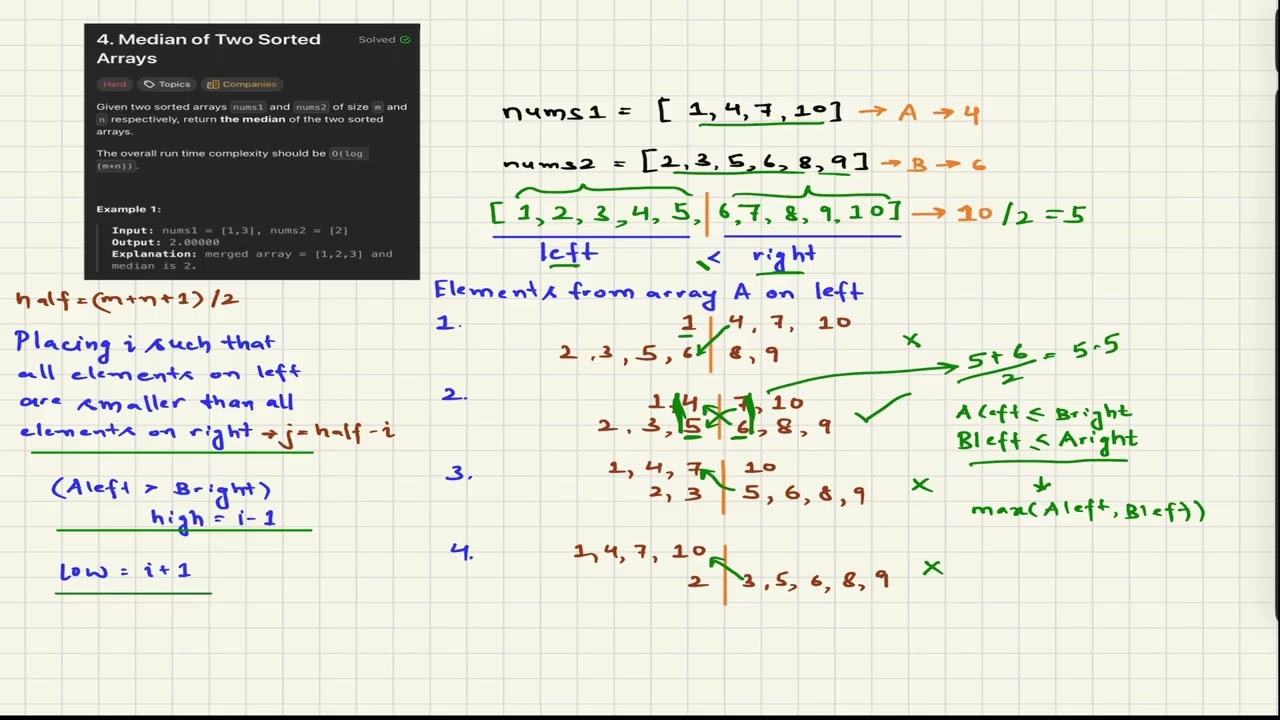 4. Median of Two Sorted
Arrays
Solved
Hard Topics Companies
Given two sorted arrays nums1 and nums2 of size m and
n respectively, return the median of the two sorted
arrays.
The overall run time complexity should be O(log
(m+n)).
Example 1:
Input: nums1 = [1,3], nums2 = [2]
Output: 2.00000
Explanation: merged array = [1,2,3] and
median is 2.
half = (m+n+1)/2
Placing i such that
all elements on left
are smaller than all
elements on right → j = half - i
(Aleft > Bright)
high = i-1
low = i+1
nums1 = [ 1, 4, 7, 10 ] → A → 4
nums2 = [2, 3, 5, 6, 8, 9] → B → 6
[ 1, 2, 3, 4, 5, | 6, 7, 8, 9, 10] → 10 /2 = 5
left < right
Elements from array A on left
1. 1 | 4, 7, 10
2, 3, 5, 6 | 8, 9 x
2. 1, 4 | 7, 10
2, 3, 5 | 6, 8, 9 ✓
3. 1, 4, 7 | 10
2, 3 | 5, 6, 8, 9 x
4. 1, 4, 7, 10 |
2 | 3, 5, 6, 8, 9 x
5+6/2 = 5.5
Aleft ≤ Bright
Bleft ≤ Aright
max(Aleft, Bleft)